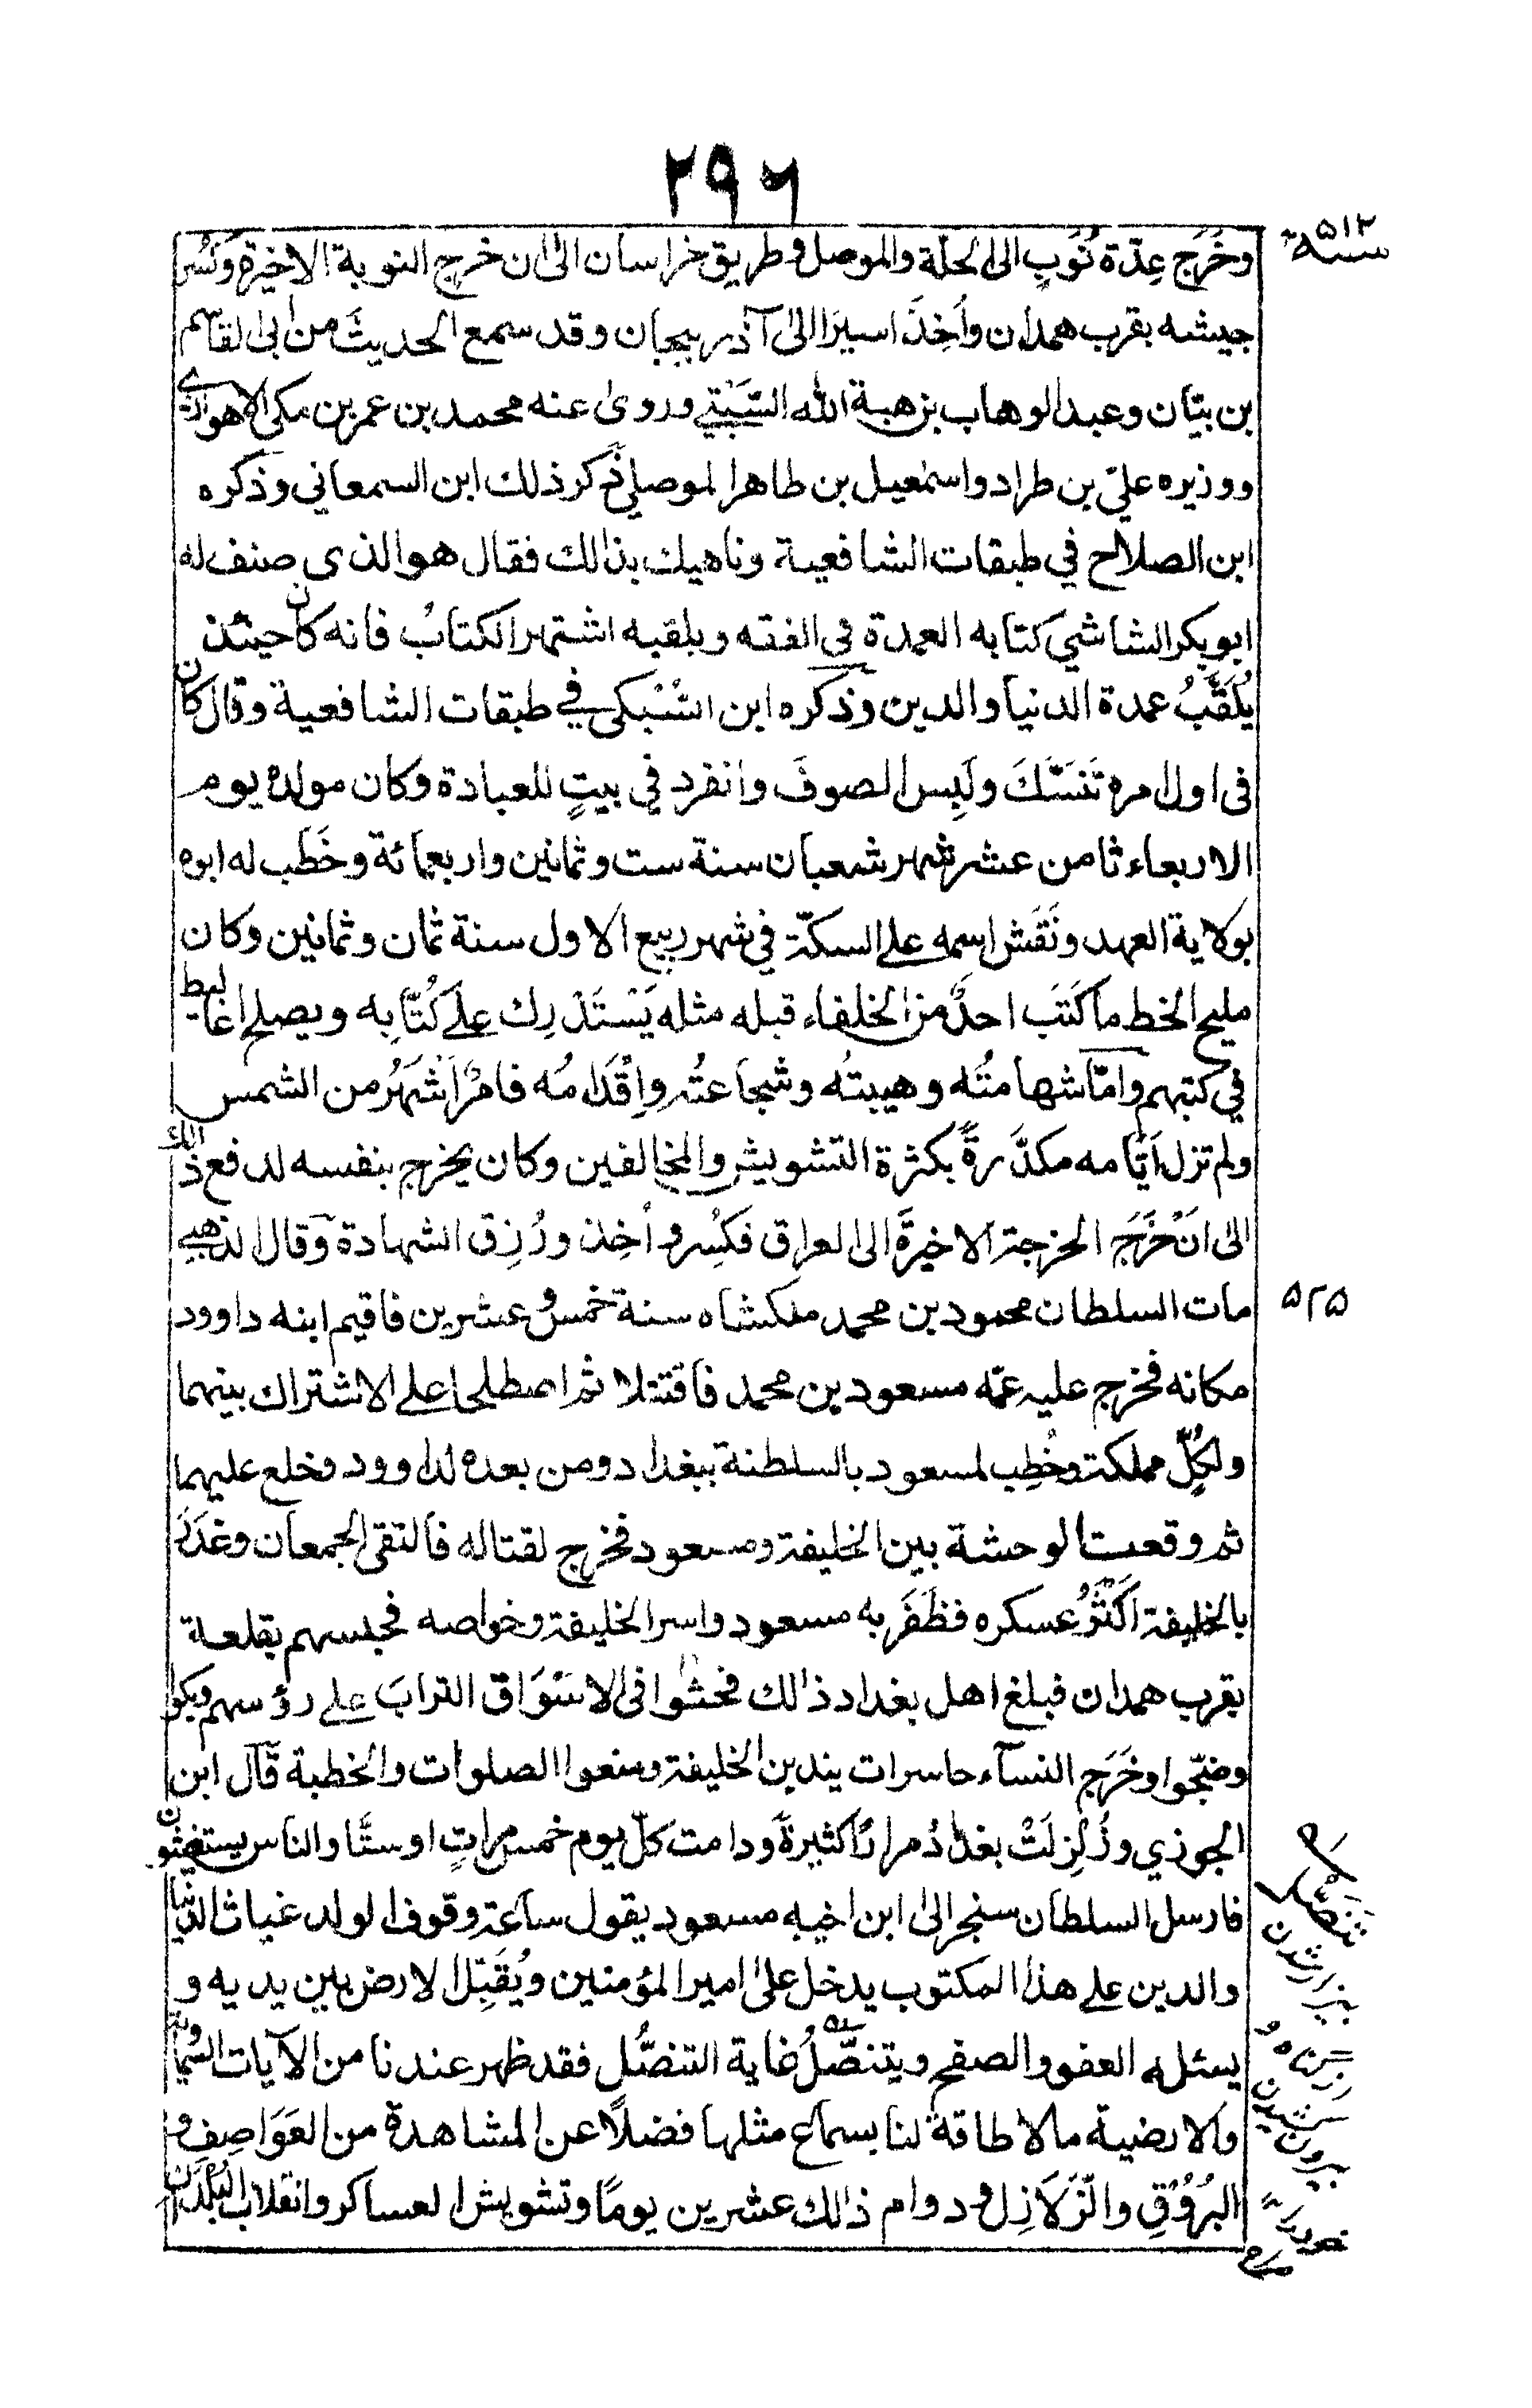 ٢٩٦
سنة ٥١٢
وخَرَجَ عِدّة نُوَبٍ الى الحلّة والموصل وطريق خراسان الىٰ ان خرج النوبة الاخيرة وكُسِر
جيشه بقرب همدان وأُخِذَ اسيرًا الىٰ آذربيجان وقد سمع الحديثَ من ابى القاسم
بن بيّان وعبد الوهاب بن هبة الله السَّبْتِي وروىٰ عنه محمد بن عمر بن مكى الاهوازى
ووزيره عليّ بن طراد واسمٰعيل بن طاهر الموصلي ذكر ذلك ابن السمعاني وذكره
ابن الصلاح في طبقات الشافعية وناهيك بذالك فقال هو الذى صنف له
ابو بكر الشاشي كتابه العمدة فى الفقه وبلقبه اشتهر الكتابُ فانه كان حيئذ
يُلَقَّبُ عمدة الدنيا والدين وذكره ابن السُّبْكى في طبقات الشافعية وقال كان
فى اول امره تَنَسَّكَ ولَبِس الصوفَ وانفرد في بيتٍ للعبادة وكان مولده يوم
الاربعاء ثامن عشر شهر شعبان سنة ست وثمانين واربعمائة وخَطَب له ابوه
بولاية العهد ونَقَش اسمه على السكّة في شهر ربيع الاول سنة ثمان وثمانين وكان
مليح الخط ما كَتَب احدٌ من الخلفاء قبله مثله يَسْتَدْرِك على كُتّابِه ويصلح اغاليط
في كتبهم وامّا شهامتُه وهيبتُه وشجاعتُه وإقْدامُه فامرٌ اَشْهَرُ من الشمس
ولم تزل اَيّامه مكدَّرةً بكثرة التشويش والمخالفين وكان يخرج بنفسه لدفع ذالك
الىٰ انْ خَرَجَ الخرجة الاخيرةَ الى العراق فكُسِر وأُخِذ ورُزِق الشهادة وقال الذهبى
مات السلطان محمود بن محمد ملكشاه سنة خمس وعشرين فاقيم ابنه داوود
٥٢٥
مكانه فخرج عليه عمّه مسعود بن محمد فاقتتلا ثم اصطلحا على الاشتراك بينهما
ولكلٍّ مملكة وخُطِب لمسعود بالسلطنة ببغداد ومن بعده لداوود وخلع عليهما
ثم وقعت الوحشة بين الخليفة ومسعود فخرج لقتاله فالتقى الجمعان وغَدَرَ
بالخليفة اكثرُ عسكره فظَفَر به مسعود واسر الخليفة وخواصه فحبسهم بقلعة
بقرب همدان فبلغ اهل بغداد ذالك فحثوا فى الاسْوَاق الترابَ على رؤسهم وبكوا
وضجّوا وخَرَجَ النسآء حاسرات يندبن الخليفة ومنعوا الصلوات والخطبة قال ابن
الجوزي وزُلْزِلَتْ بغدادُ مرارًا كثيرةً ودامت كلّ يوم خمس مراتٍ او ستًّا والناس يستغيثون
فارسل السلطان سنجر الىٰ ابن اخيه مسعود يقول ساعة وقوف الولد غياث الدنيا
والدين على هذا المكتوب يدخل علىٰ امير المؤمنين ويُقَبِّل الارض بين يديه و
يسئله العفو والصفح ويتنصَّلُ غاية التنصُّل فقد ظهر عندنا من الآيات السماوية
والارضية ما لا طاقة لنا بسماع مثلها فضلًا عن المشاهدة من العَوَاصِفِ و
البُرُوْقِ والزَّلَازِل ودوام ذالك عشرين يومًا وتشويش العساكر وانقلاب البُلْدَان